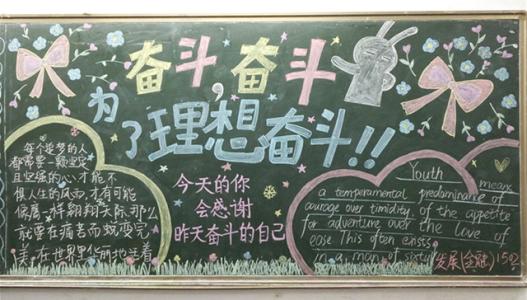 奋斗,奋斗
为了理想奋斗!!
每个追梦的人
都需要一颗坚定
且坚强的心才能不
惧人生的风雨,才有可能
像鹰一样翱翔天际,那么
就要在痛苦而蜕变完
美,在世界华丽地活着
今天的你
会感谢
昨天奋斗的自己
Youth means
a temperamental predominance of
courage over timidity, of the appetite
for adventure over the love of
ease This often exists
in a man of sixty
发展(金融)1502